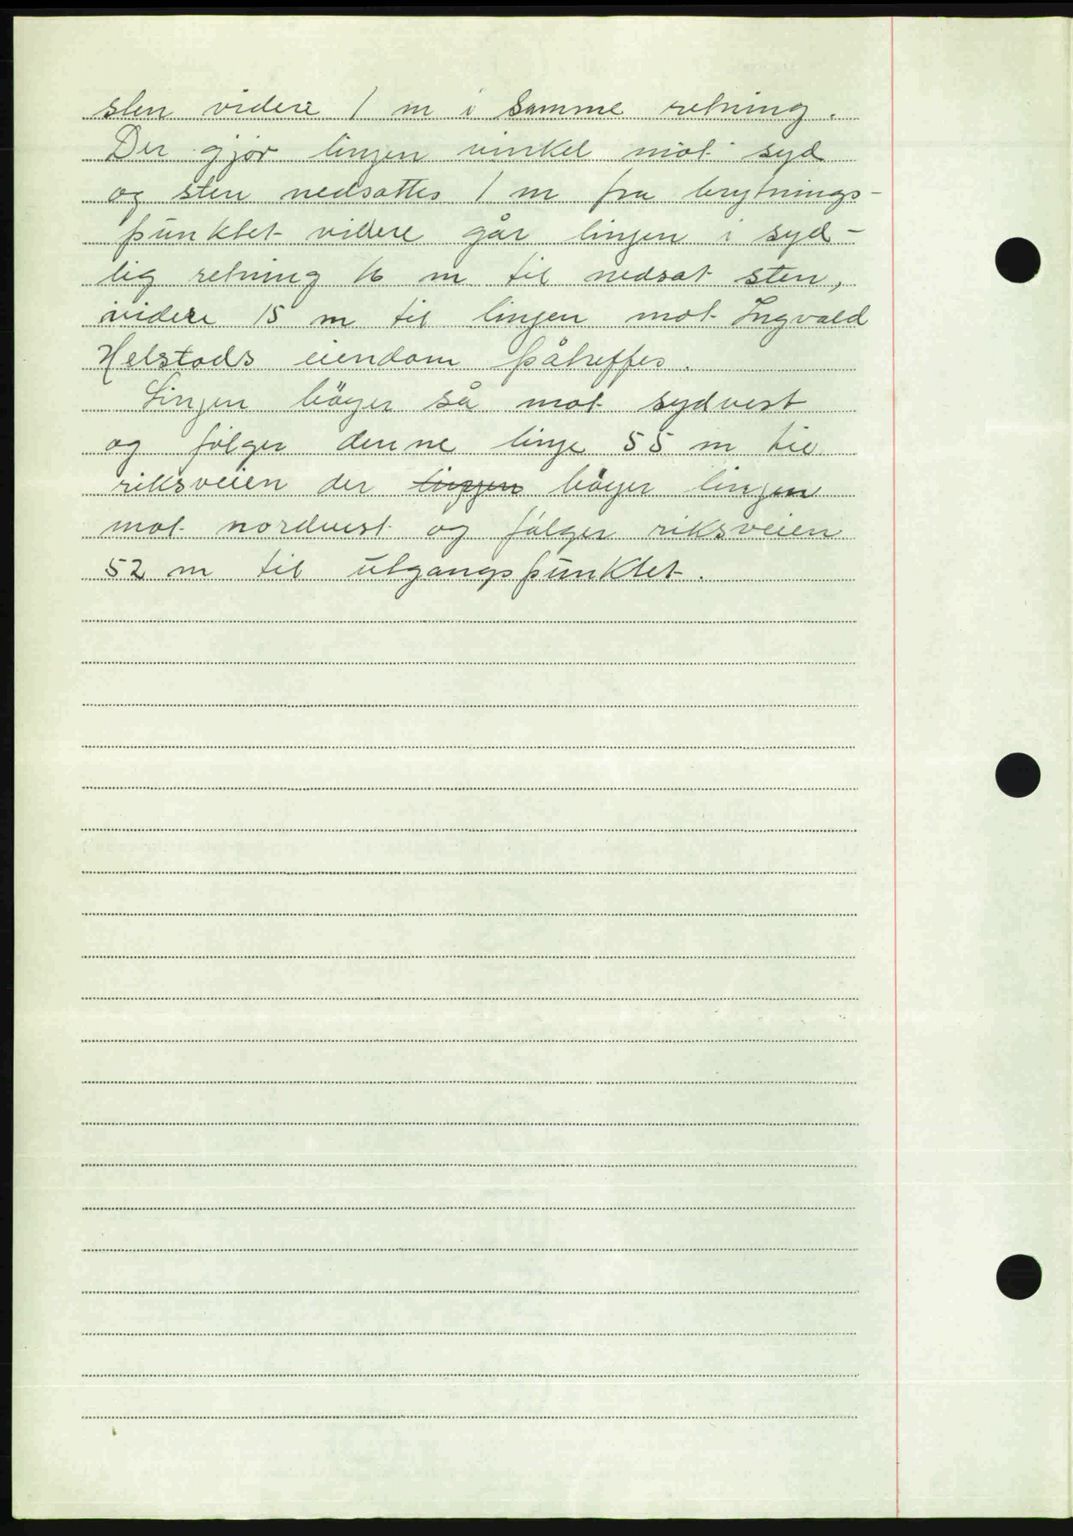 sten videre 1 m i samme retning.
Der gjør linjen vinkel mot syd
og sten nedsattes 1 m fra brytnings-
punktet videre går linjen i syd-
lig retning 16 m til nedsat sten,
videre 15 m til linjen mot Ingvald
Helstads eiendom påtreffes.
Linjen böyer så mot sydvest
og følger denne linje 55 m til
riksveien der linjen böyer linjen
mot nordvest og følger riksveien
52 m til utgangspunktet.